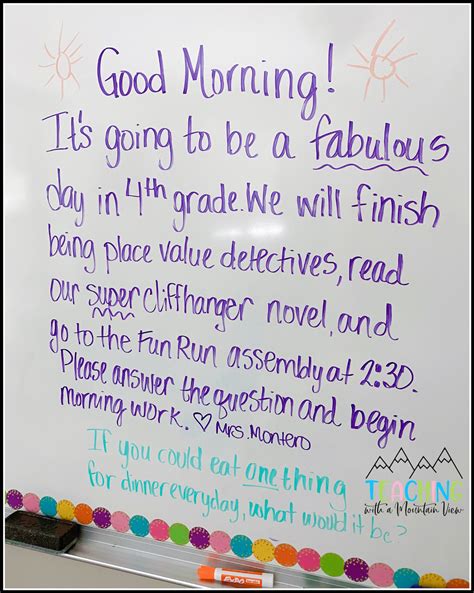 Good Morning!
It's going to be a fabulous
day in 4th grade. We will finish
being place value detectives, read
our super cliffhanger novel, and
go to the Fun Run assembly at 2:30.
Please answer the question and begin
morning work. ♡ Mrs. Montero
If you could eat one thing
for dinner everyday, what would it be?
TEACHING
with a Mountain View
EXPO